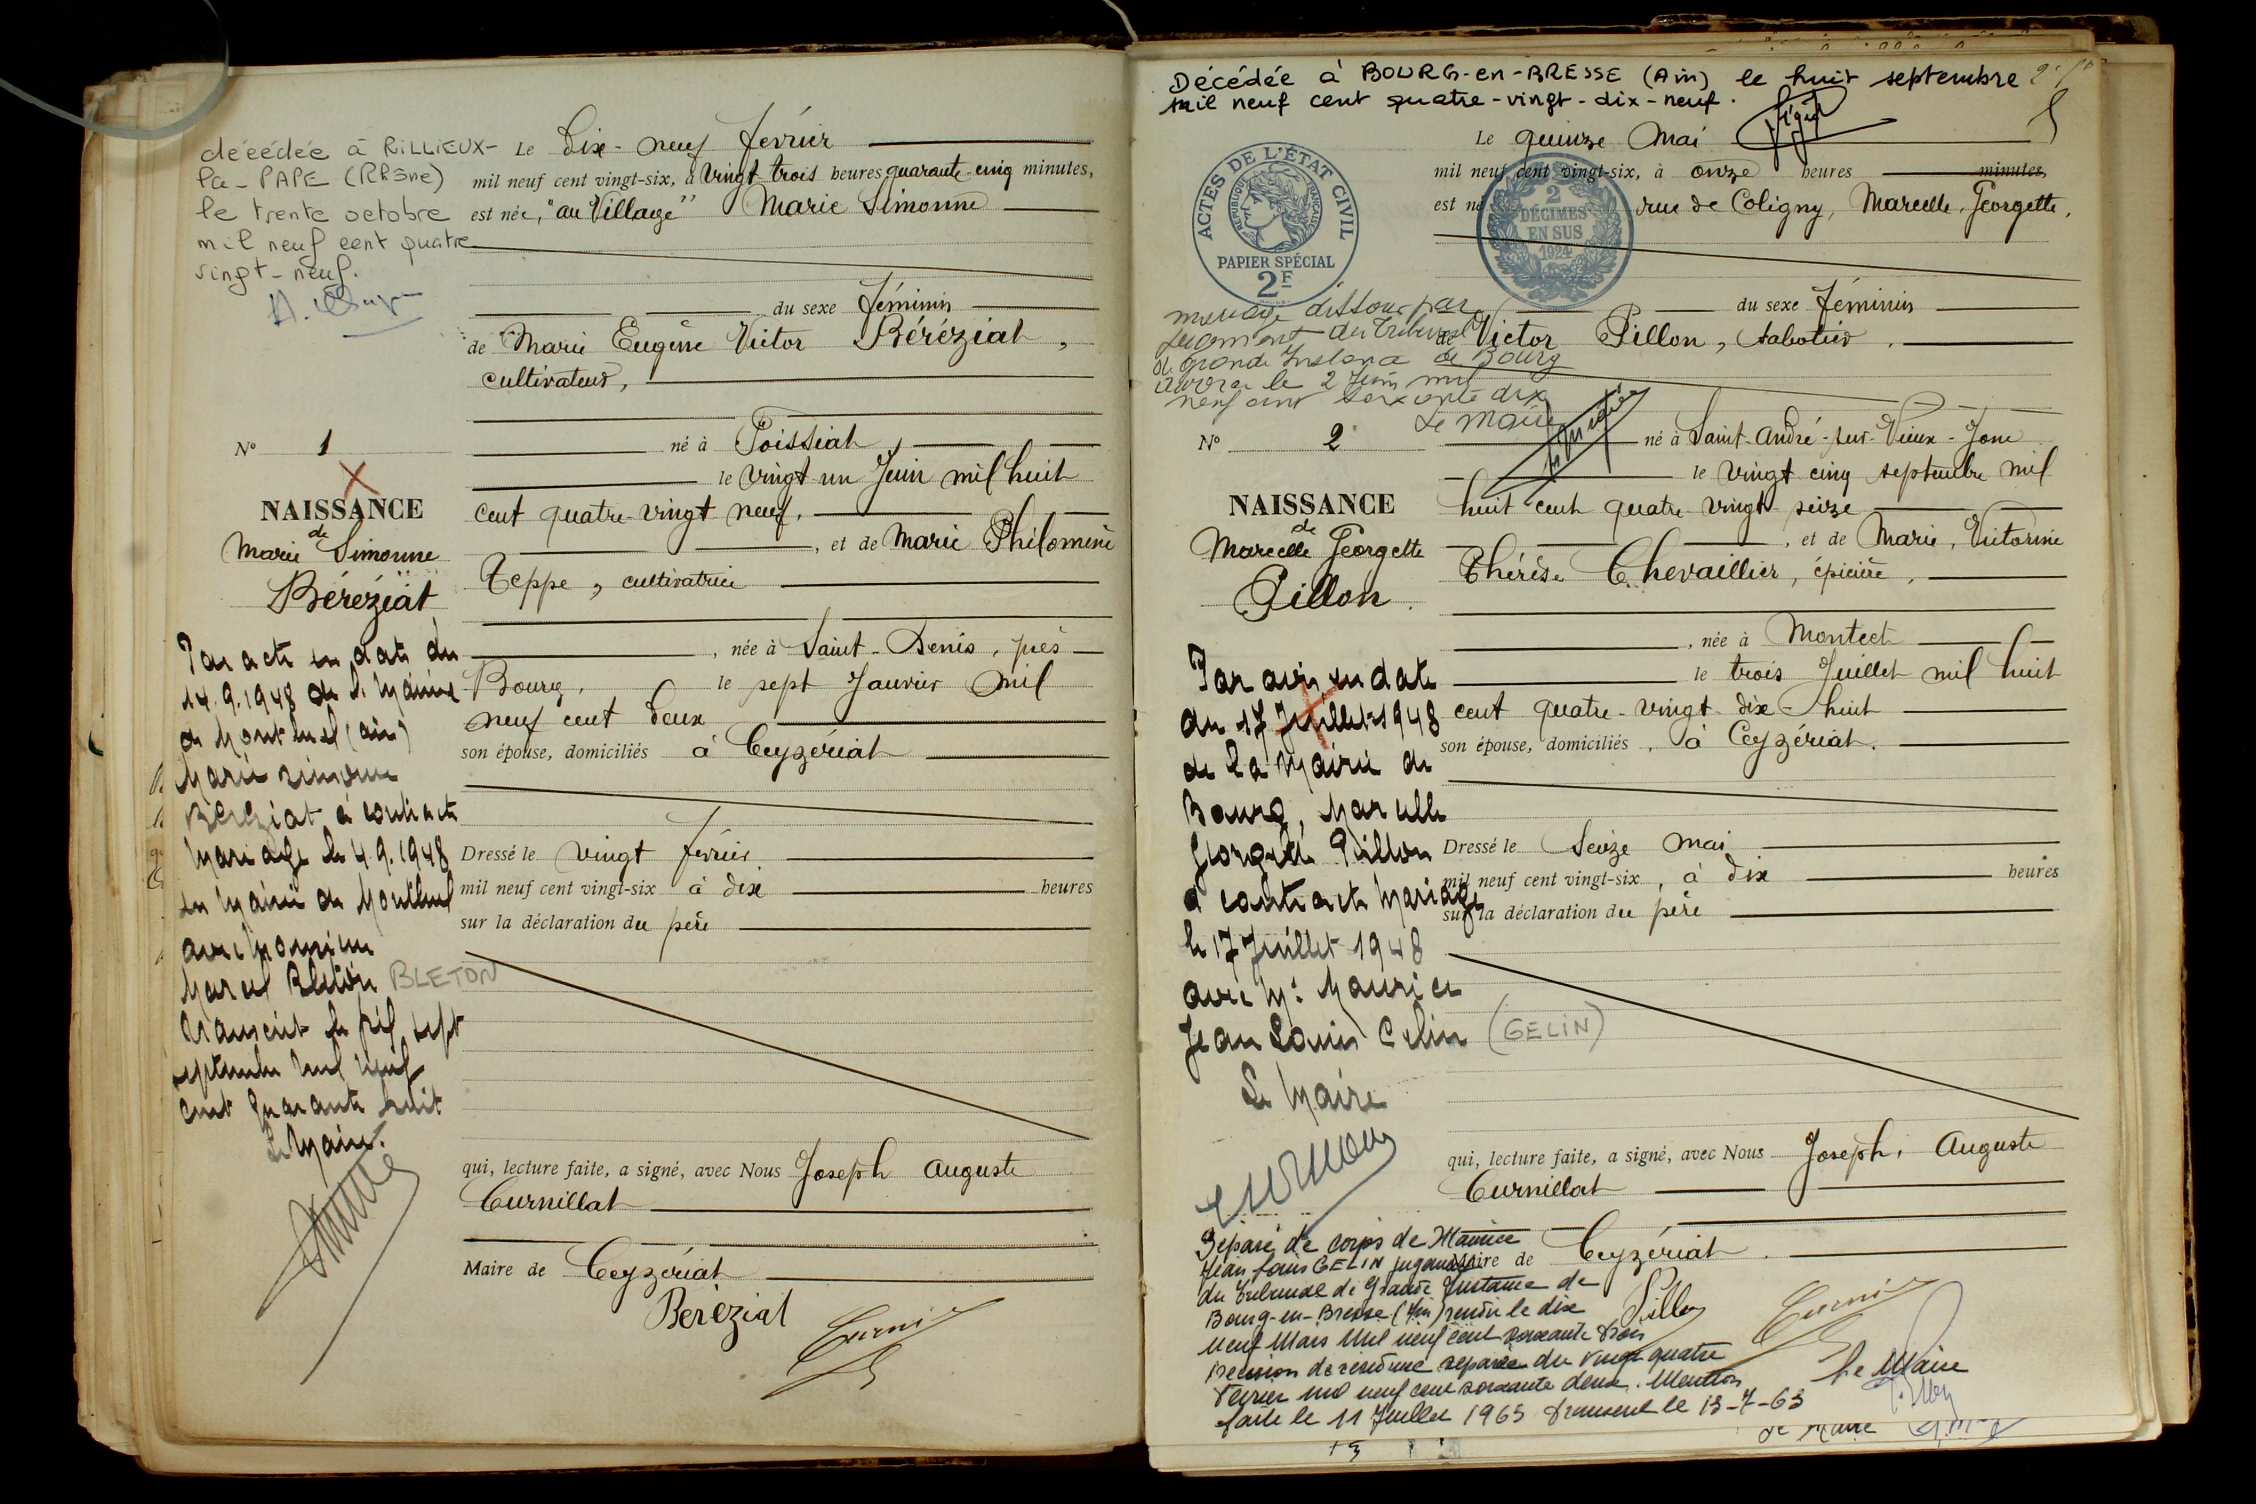 décédée à RILLIEUX-
la-PAPE (Rhône)
le trente octobre
mil neuf cent quatre
vingt-neuf.
Le Dix-neuf février
mil neuf cent vingt-six, à vingt trois heures quarante-cinq minutes,
est née, "au Village" Marie Simonne
du sexe féminin
de Marie Eugène Victor Béréziat,
cultivateur,
né à Poissiat
le vingt un Juin mil huit
cent quatre-vingt neuf,
, et de Marie Philomène
Teppe, cultivatrice
, née à Saint-Denis, près
Bourg, le sept Janvier mil
neuf cent deux
son épouse, domiciliés à Ceyzériat
Dressé le vingt février
mil neuf cent vingt-six à dix heures
sur la déclaration du père
qui, lecture faite, a signé, avec Nous Joseph Auguste
Curnillat
Maire de Ceyzériat
Béréziat
N° 1
NAISSANCE
de
Marie Simonne
Béréziat
Par acte en date du
14.9.1948 de la Mairie
de Montluel (Ain)
Marie Simonne
Béréziat a contracté
Mariage le 4.9.1948
en Mairie de Montluel
avec Monsieur
Marcel Bleton BLETON
Transcrit le dix sept
septembre mil neuf
cent quarante huit
Le Maire.
Décédée à BOURG-en-BRESSE (Ain) le huit septembre
mil neuf cent quatre-vingt-dix-neuf.
ACTES DE L'ÉTAT CIVIL
RÉPUBLIQUE FRANÇAISE
PAPIER SPÉCIAL
2F
2
DÉCIMES
EN SUS
1924
Le quinze Mai
mil neuf cent vingt-six, à onze heures minutes,
est né rue de Coligny, Marcelle, Georgette,
du sexe féminin
de Victor Pillon, sabotier,
né à Saint-André-sur-Vieux-Jonc
le vingt cinq septembre mil
huit cent quatre vingt seize
, et de Marie, Victorine
Thérèse Chevaillier, épicière,
, née à Montcet
le trois Juillet mil huit
cent quatre-vingt-dix-huit
son épouse, domiciliés, à Ceyzériat.
Dressé le Seize mai
mil neuf cent vingt-six, à dix heures
sur la déclaration du père
qui, lecture faite, a signé, avec Nous Joseph, Auguste
Curnillat
Maire de Ceyzériat.
Pillon
mariage dissous par
jugement du Tribunal
de grande Instance de Bourg
divorce le 2 Juin mil
neuf cent soixante dix
Le Maire
N° 2
NAISSANCE
de
Marcelle Georgette
Pillon
Par avis en date
du 17 Juillet 1948
de la Mairie de
Bourg, Marcelle
Georgette Pillon
a contracté Mariage
le 17 Juillet 1948
avec Mr Maurice
Jean Louis Gelin (GELIN)
Le Maire
Séparé de corps de Maurice
Jean Louis GELIN jugement
du Tribunal de Grande Instance de
Bourg-en-Bresse (Ain) rendu le dix
neuf Mars mil neuf cent soixante trois
Décision de résidence séparée du vingt quatre
Février mil neuf cent soixante deux. Mention
faite le 11 Juillet 1963 transcrit le 13-7-63
Le Maire
Le Maire